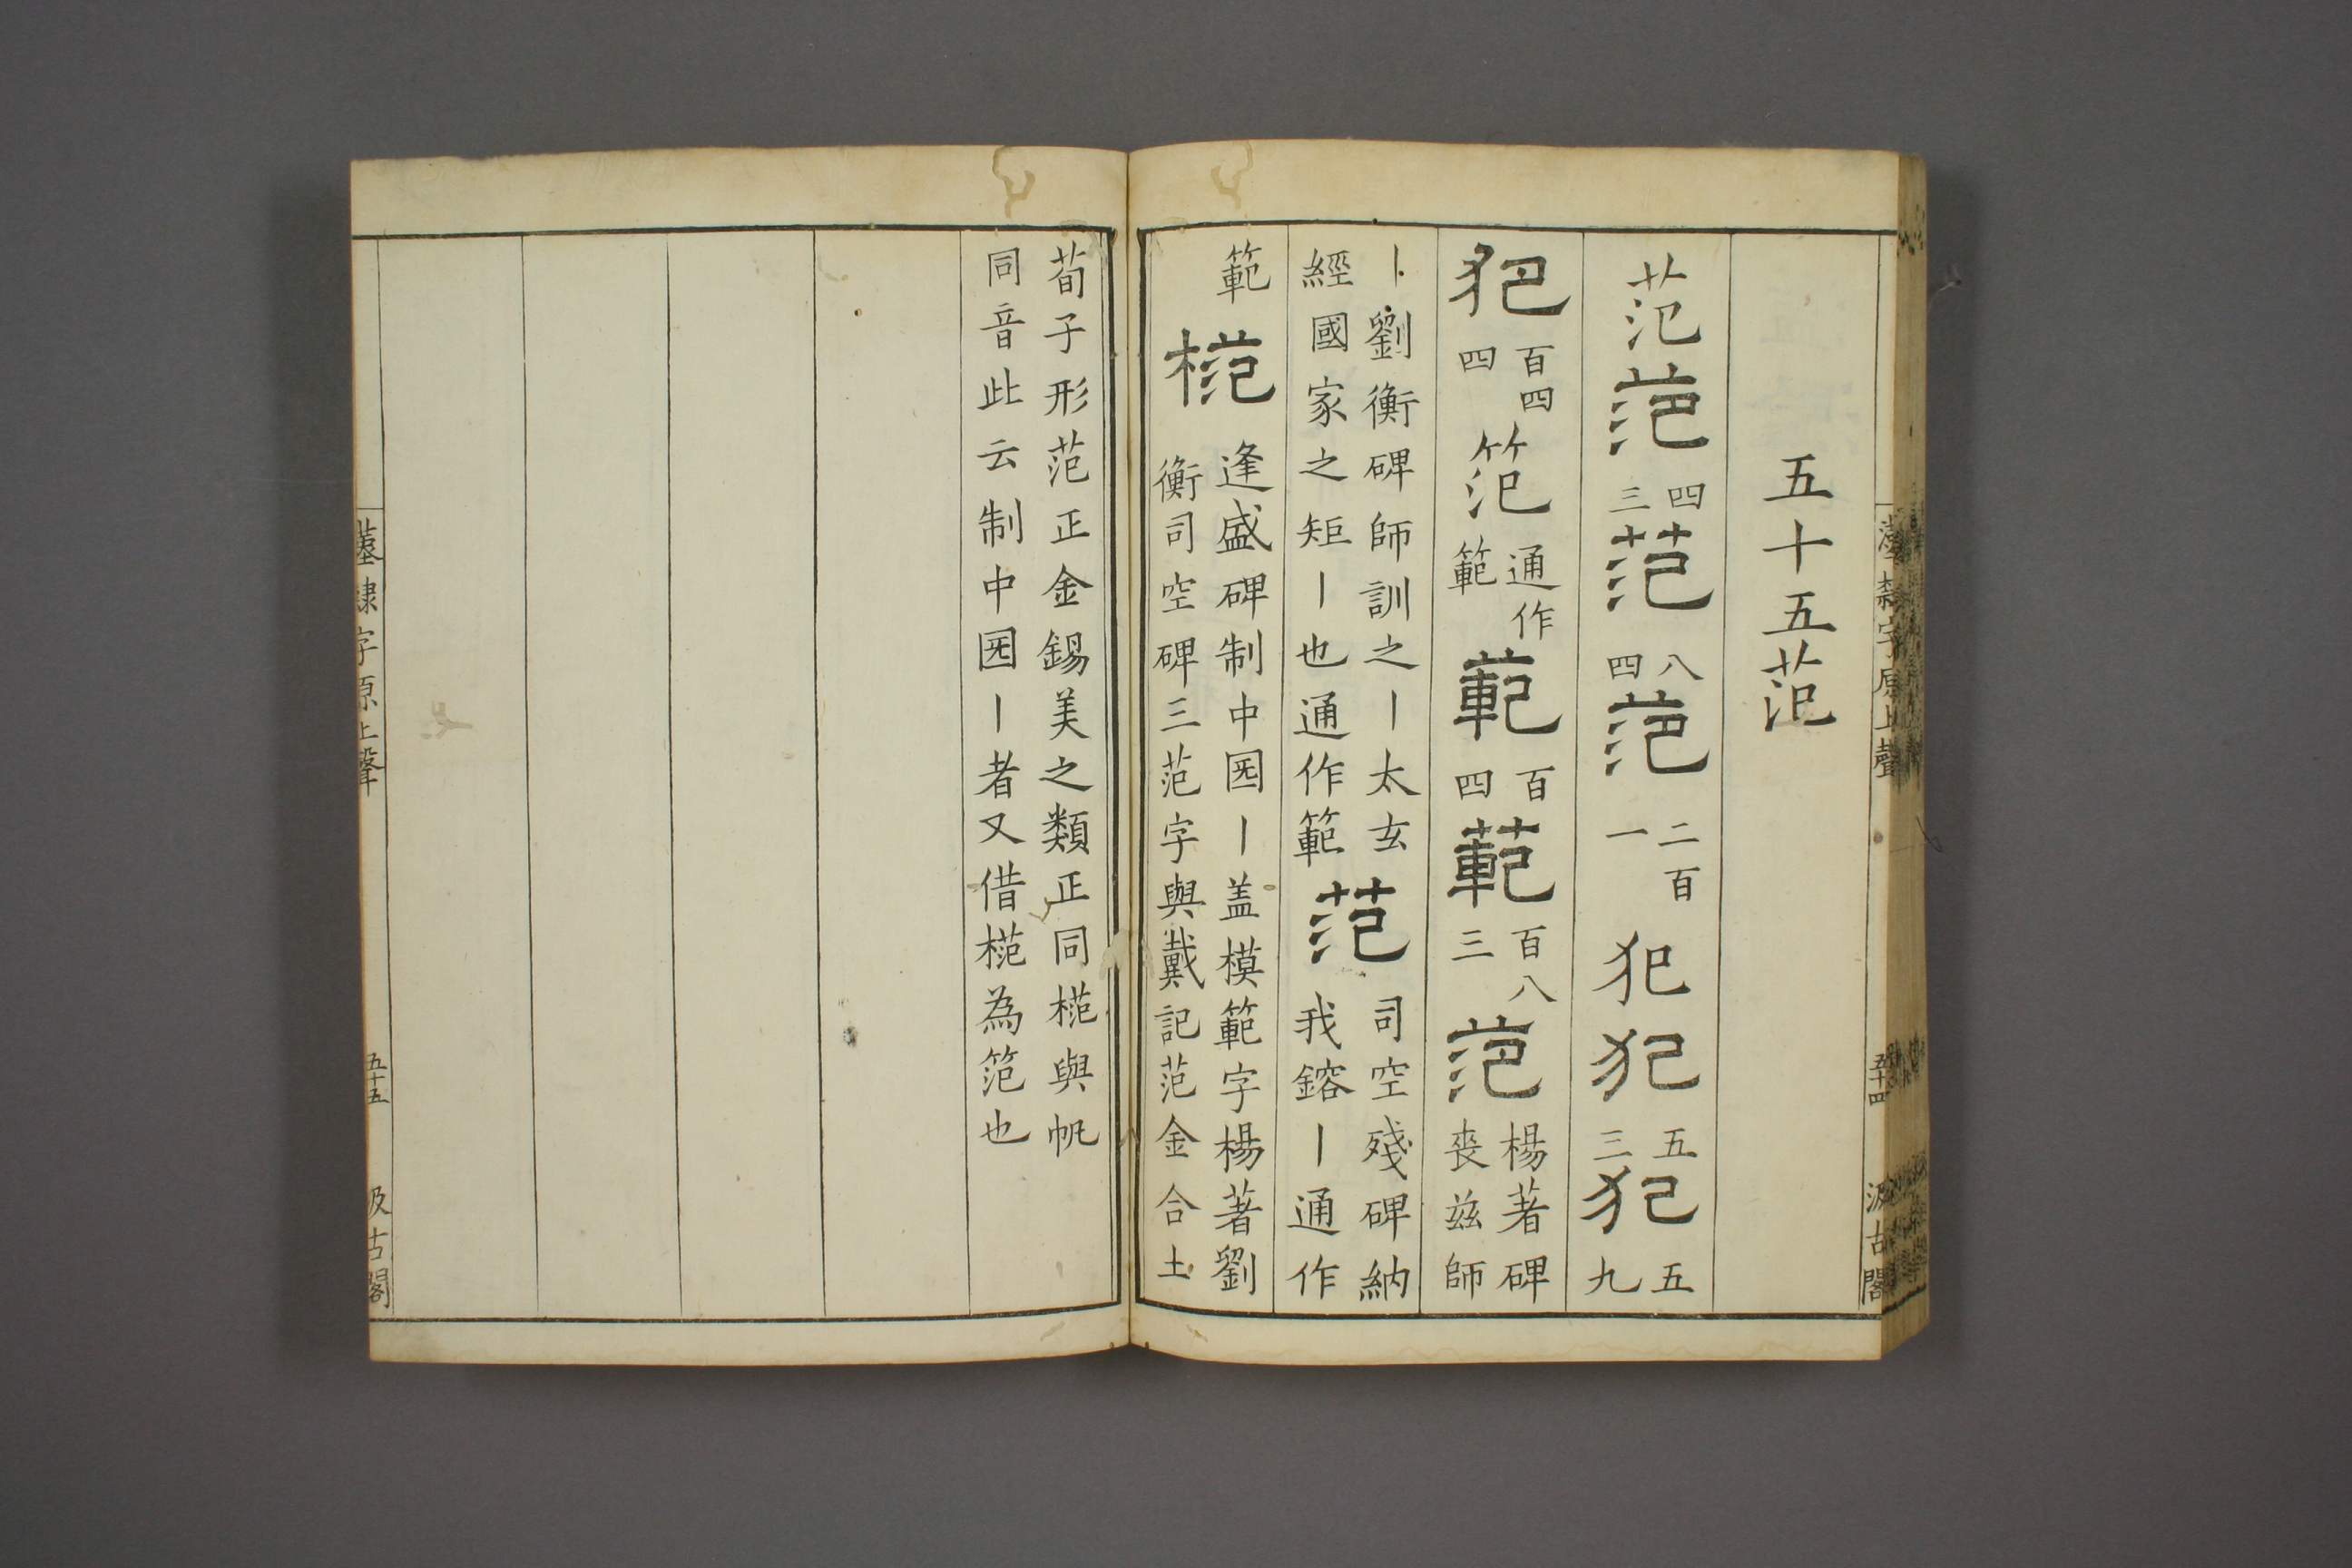 漢隸字原上聲 五十四 汲古閣
五十五范
范 范 四三 范 八四 范 二百一 犯 犯 五三 犯 五九
犯 百四四 笵 通作範 範 百四 範 百八三 范 楊著碑喪茲師
丨劉衡碑師訓之丨太玄經國家之矩丨也通作範 范 司空殘碑納我鎔丨通作
範 𣔶 逢盛碑制中囻丨盖模範字楊著劉衡司空碑三范字與戴記范金合土
荀子形范正金錫美之類正同𣔶與帆同音此云制中囻丨者又借𣔶為笵也
隸字原上聲 五十五 汲古閣